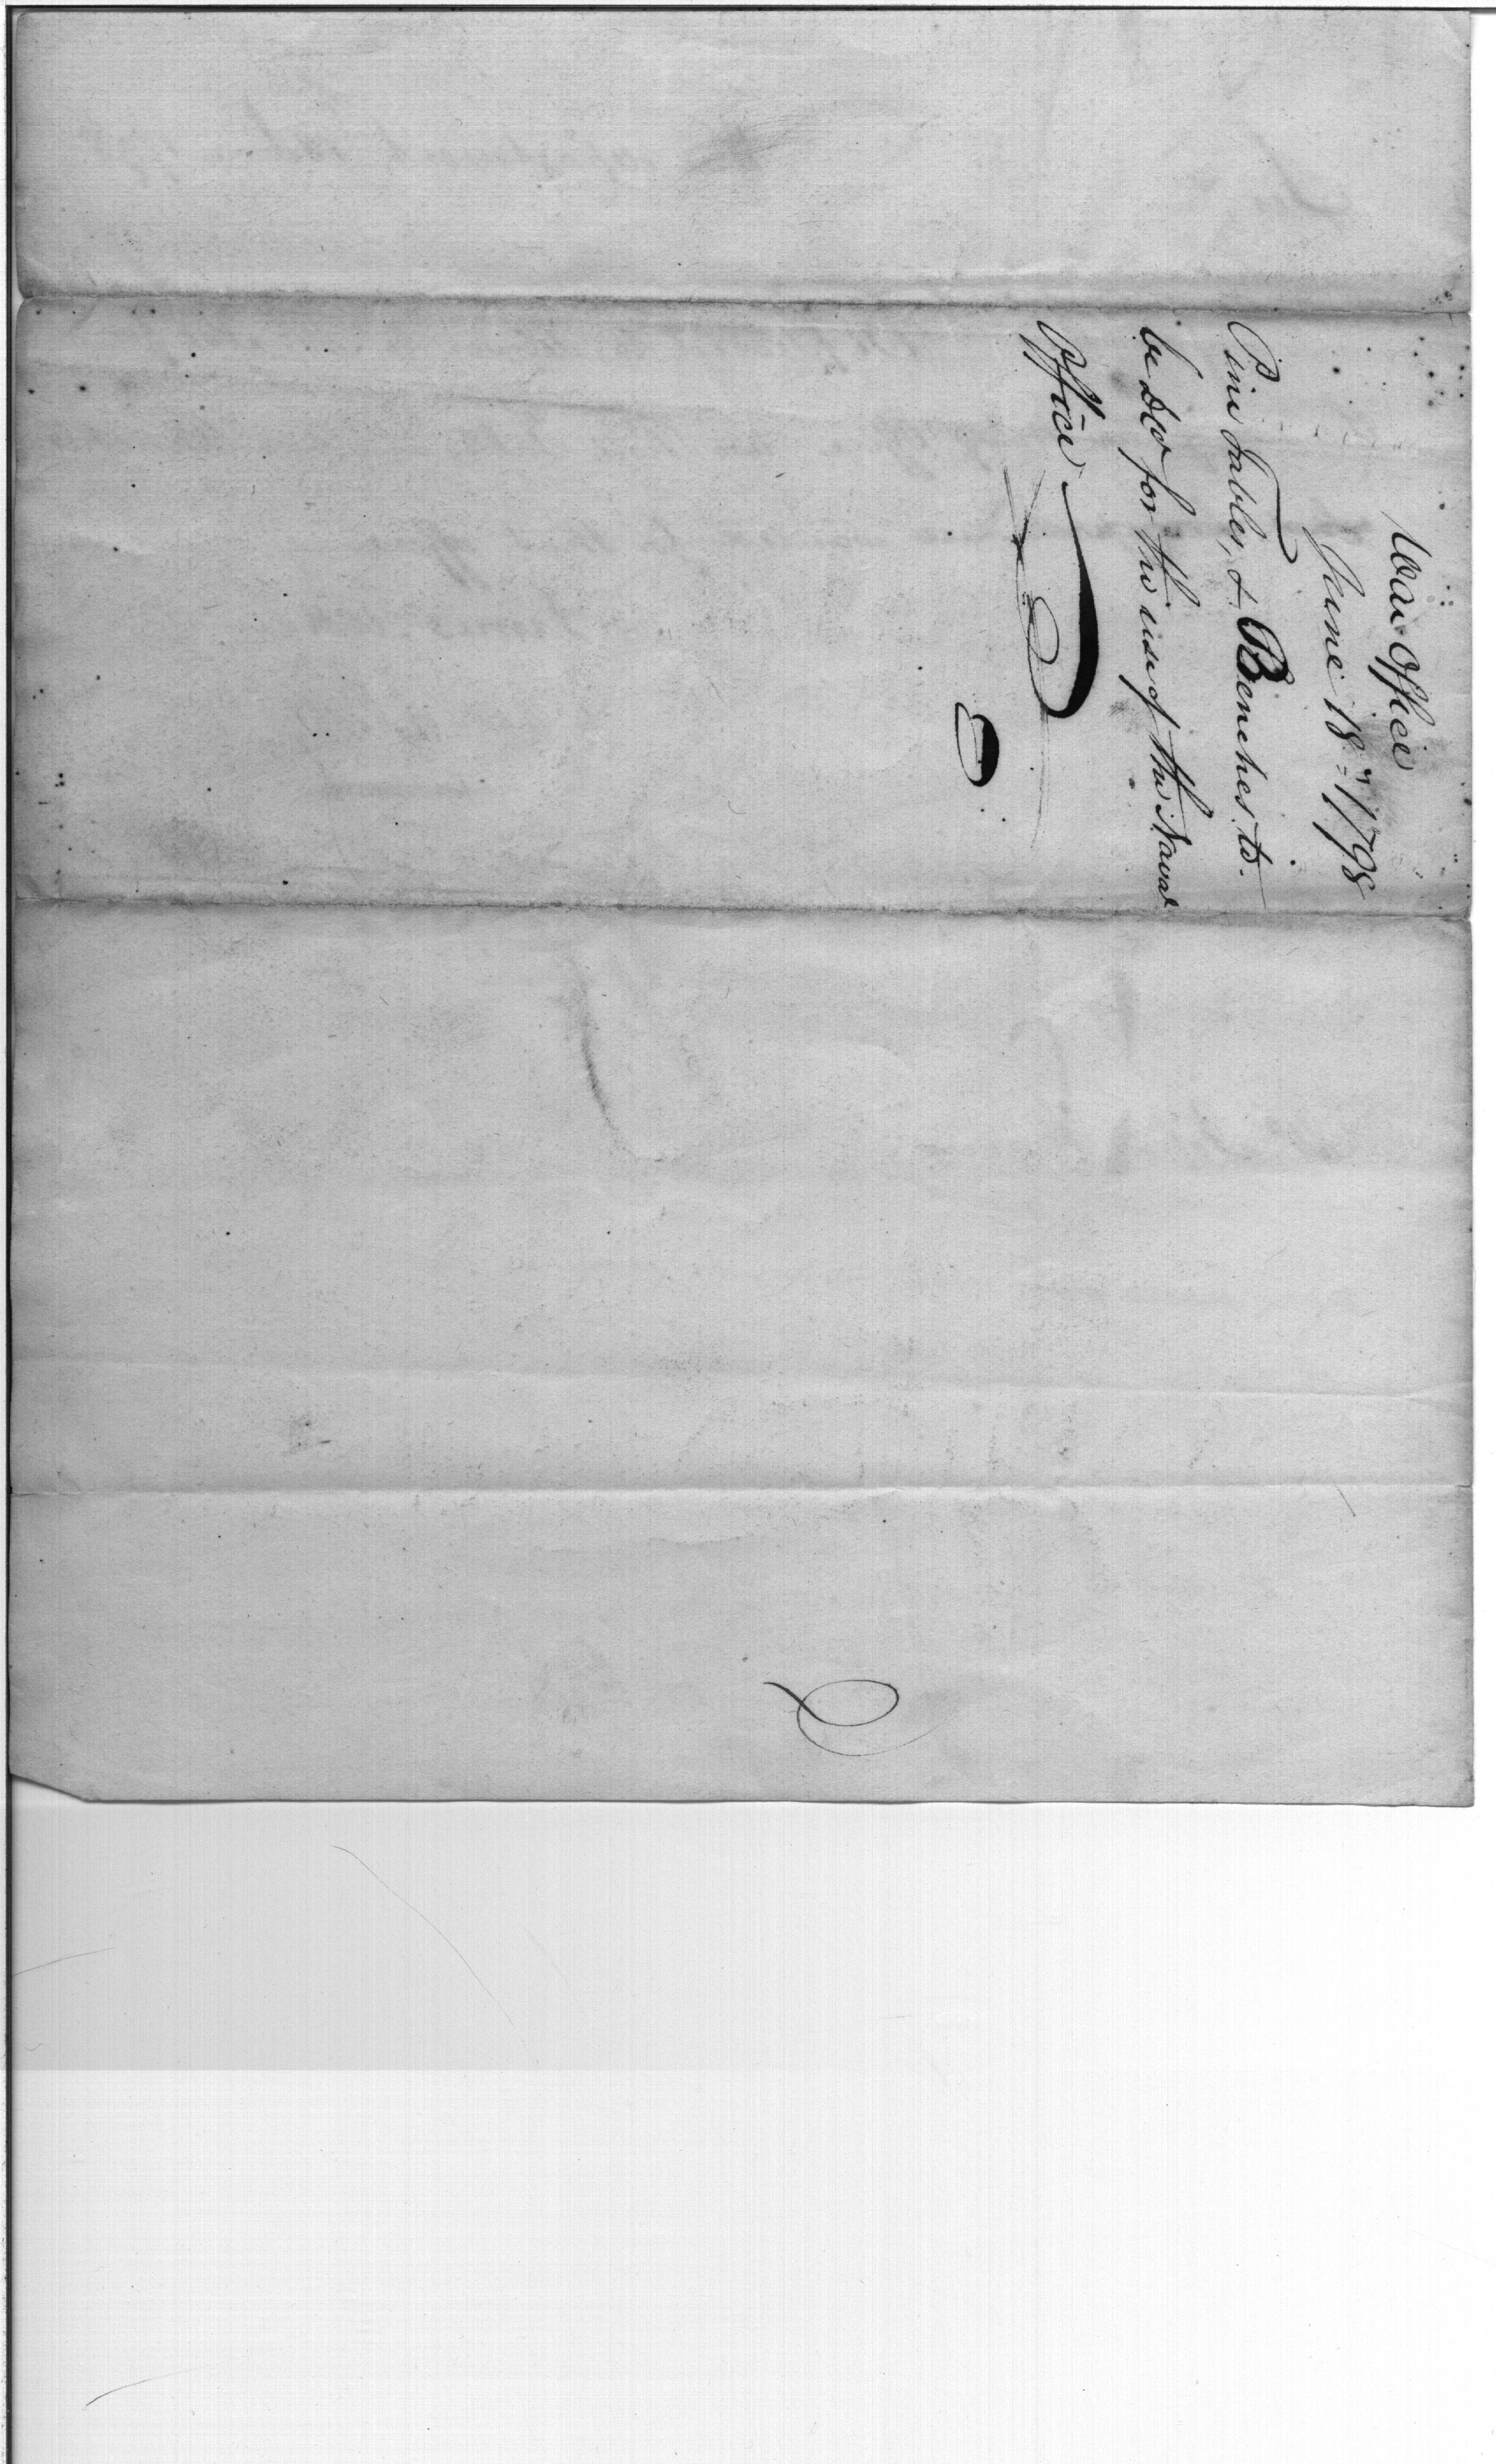 War Office
June 18th 1798
Pine Tables, & Benches to
be Deld for the use of the Naval
Office